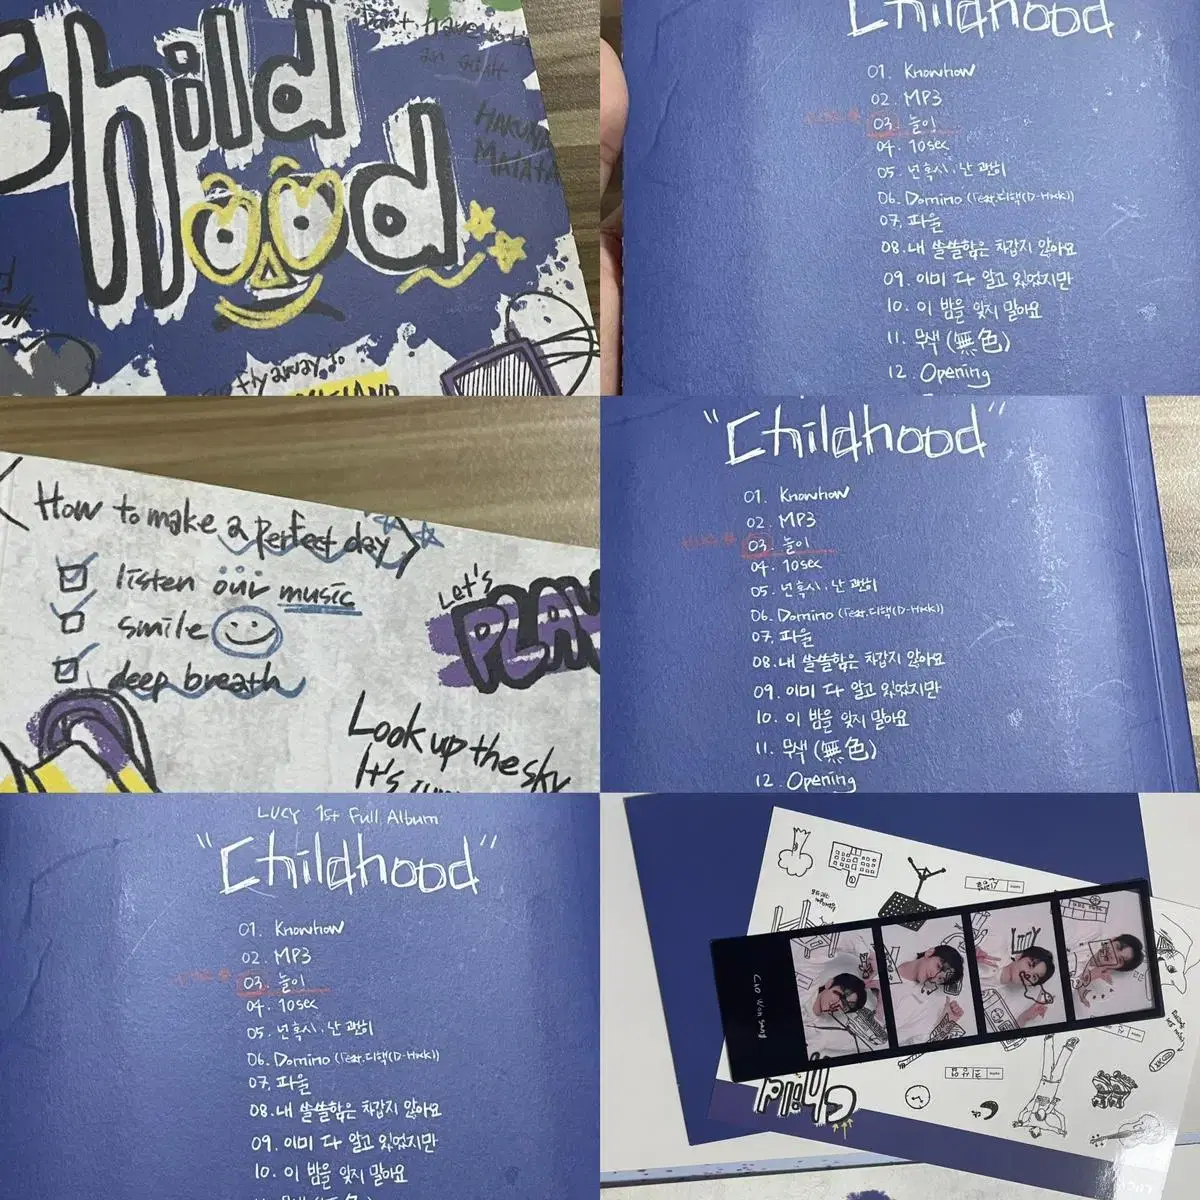 Child
hood
Don't have to be
an adult
HAKUNA
MATATA
fly away to
Childhood
01. Knowhow
02. MP3
03. 놀이
04. 10sec
05. 넌 혹시, 난 괜히
06. Domino (Feat. 디핵(D-Hack))
07. 파울
08. 내 쓸쓸함은 차갑지 않아요
09. 이미 다 알고 있었지만
10. 이 밤을 잊지 말아요
11. 무색 (無色)
12. Opening
< How to make a perfect day >
listen our music
smile
deep breath
Let's
PLAY
Look up the sky
It's
"Childhood"
01. Knowhow
02. MP3
03. 놀이
04. 10sec
05. 넌 혹시, 난 괜히
06. Domino (Feat. 디핵(D-Hack))
07. 파울
08. 내 쓸쓸함은 차갑지 않아요
09. 이미 다 알고 있었지만
10. 이 밤을 잊지 말아요
11. 무색 (無色)
12. Opening
LUCY 1st Full Album
"Childhood"
01. Knowhow
02. MP3
03. 놀이
04. 10sec
05. 넌 혹시, 난 괜히
06. Domino (Feat. 디핵(D-Hack))
07. 파울
08. 내 쓸쓸함은 차갑지 않아요
09. 이미 다 알고 있었지만
10. 이 밤을 잊지 말아요
Cho Won Sang
Child